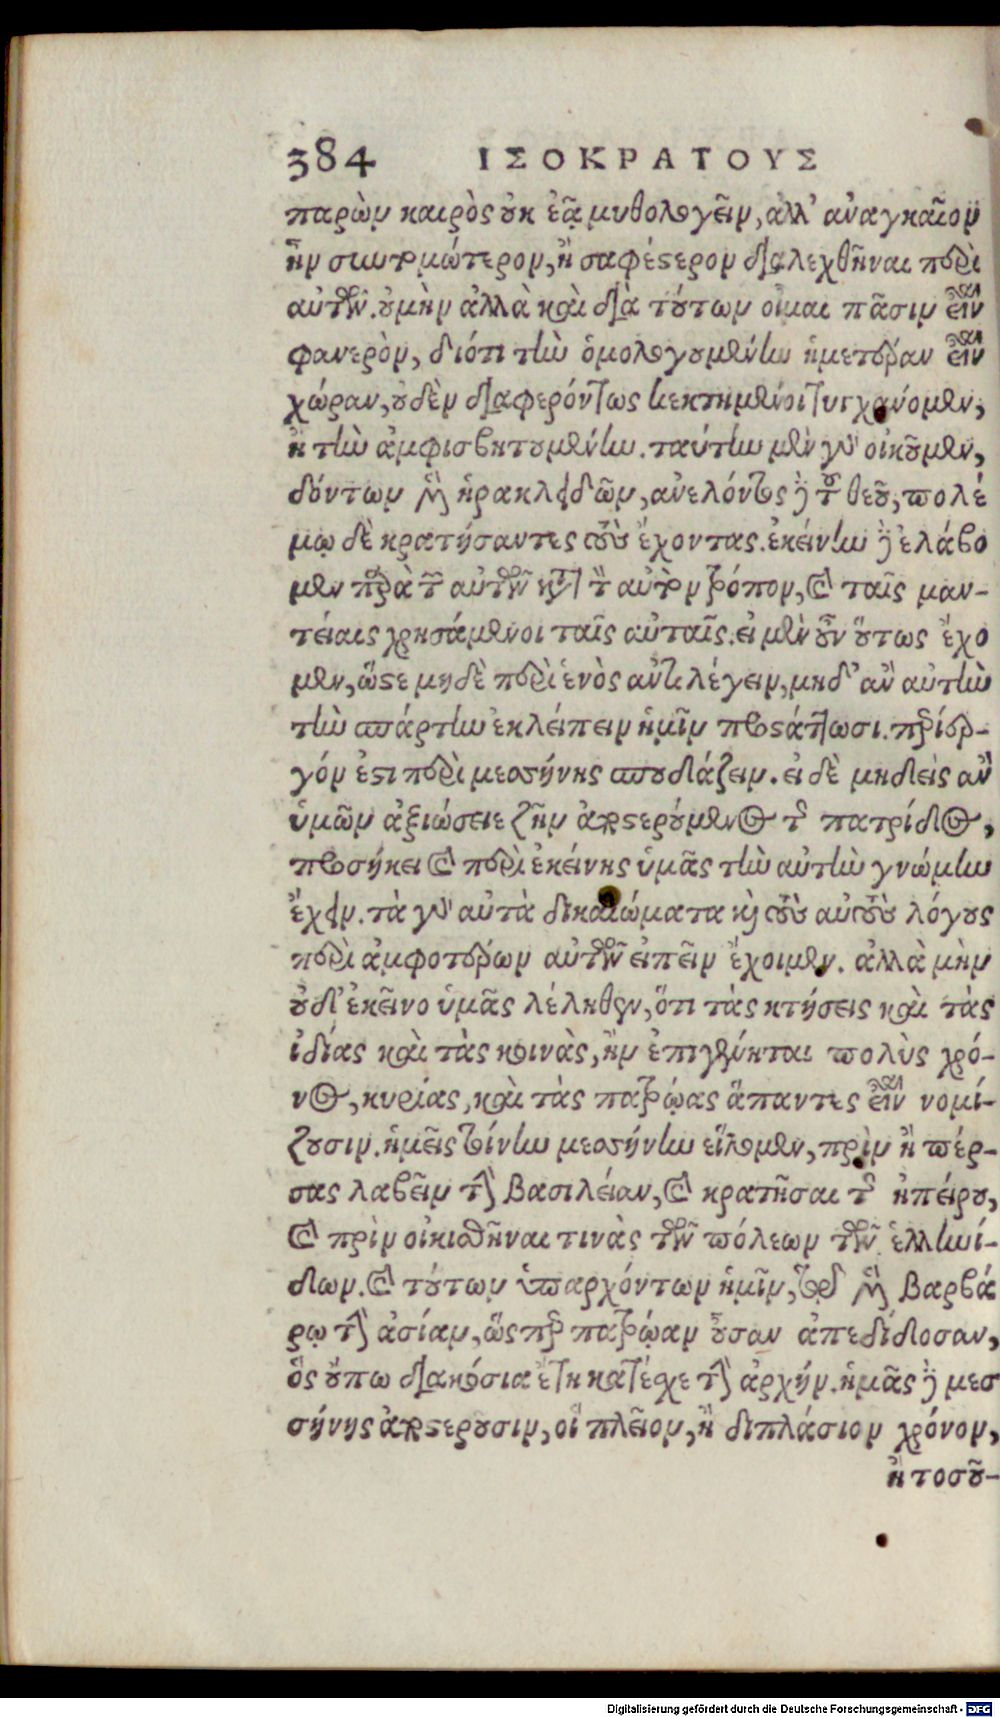 384 ΙΣΟΚΡΑΤΟΥΣ
παρὼν καιρὸς οὐκ ἐᾷ μυθολογεῖν, ἀλλ' ἀναγκαῖον
ἦν συντομώτερον, ἢ σαφέστερον διαλεχθῆναι περὶ
αὐτῶν. οὐ μὴν ἀλλὰ καὶ διὰ τούτων οἶμαι πᾶσιν εἶναι
φανερὸν, διότι τὴν ὁμολογουμένην ἡμετέραν εἶναι
χώραν, οὐδὲν διαφερόντως κεκτημένοι τυγχάνομεν,
ἢ τὴν ἀμφισβητουμένην. ταύτην μὲν γὰρ οἰκοῦμεν,
δόντων μὲν ἡρακλειδῶν, ἀνελόντος δὲ τοῦ θεοῦ, πολέ
μῳ δὲ κρατήσαντες τοὺς ἔχοντας. ἐκείνην δὲ ἐλάβο
μεν παρὰ τῶν αὐτῶν κατὰ τὸν αὐτὸν τρόπον, καὶ ταῖς μαν-
τείαις χρησάμενοι ταῖς αὐταῖς. εἰ μὲν οὖν οὕτως ἔχο
μεν, ὥστε μηδὲ περὶ ἑνὸς ἀντιλέγειν, μηδ' ἂν αὐτὴν
τὴν σπάρτην ἐκλείπειν ἡμῖν προστάττωσι. περίερ-
γόν ἐστι περὶ μεσσήνης σπουδάζειν. εἰ δὲ μηδεὶς ἂν
ὑμῶν ἀξιώσειε ζῆν ἀποστερούμενος τῆς πατρίδος,
προσήκει καὶ περὶ ἐκείνης ὑμᾶς τὴν αὐτὴν γνώμην
ἔχειν. τὰ γὰρ αὐτὰ δικαιώματα καὶ τοὺς αὐτοὺς λόγους
περὶ ἀμφοτέρων αὐτῶν εἰπεῖν ἔχοιμεν. ἀλλὰ μὴν
οὐδ' ἐκεῖνο ὑμᾶς λέληθεν, ὅτι τὰς κτήσεις καὶ τὰς
ἰδίας καὶ τὰς κοινὰς, ἢν ἐπιγένηται πολὺς χρό-
νος, κυρίας, καὶ τὰς πατρῴας ἅπαντες εἶναι νομί-
ζουσιν. ἡμεῖς τοίνυν μεσσήνην εἵλομεν, πρὶν ἢ πέρ-
σας λαβεῖν τὴν βασιλείαν, καὶ κρατῆσαι τῆς ἠπείρου,
καὶ πρὶν οἰκισθῆναι τινὰς τῶν πόλεων τῶν ἑλληνί-
δων. καὶ τούτων ὑπαρχόντων ἡμῖν, τῷ μὲν βαρβά
ρῳ τὴν ἀσίαν, ὡς περ πατρῴαν οὖσαν ἀπεδίδοσαν,
ὃς οὔπω διακόσια ἔτη κατέσχε τὴν ἀρχήν. ἡμᾶς δὲ μεσ
σήνης ἀποστεροῦσιν, οἳ πλεῖον, ἢ διπλάσιον χρόνον,
ἢ τοσοῦ-
Digitalisierung gefördert durch die Deutsche Forschungsgemeinschaft - DFG